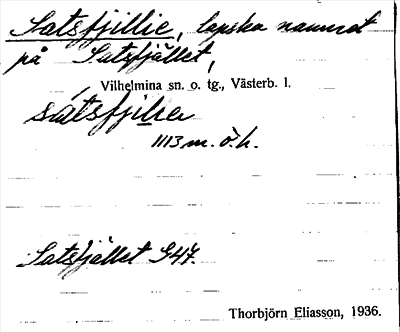 Satsfjillie, lapska namnet
på Satsfjället,
Vilhelmina sn. o. tg., Västerb. l.
sátsfjilıe
1113 m. ö. h.
Satsfjället G47.
Thorbjörn Eliasson, 1936.